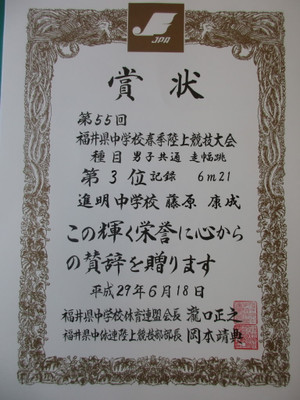 JPA
賞状
第55回
福井県中学校春季陸上競技大会
種目 男子共通 走幅跳
第3位 記録 6m21
進明中学校 藤原 康成
この輝く栄誉に心から
の賛辞を贈ります
平成29年6月18日
福井県中学校体育連盟会長 瀧口正之
福井県中体連陸上競技部部長 岡本靖典